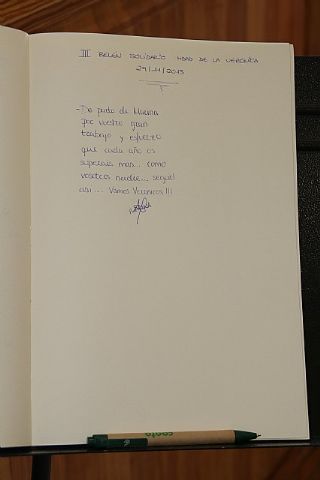 III BELEN SOLIDARIO HDAD DE LA VERONICA
29/11/2013
- De parte de
por vuestro gran
trabajo y esfuerzo
que cada año os
superais mas... como
vosotros nadie... seguid
asi... Vamos Veronicas!!!